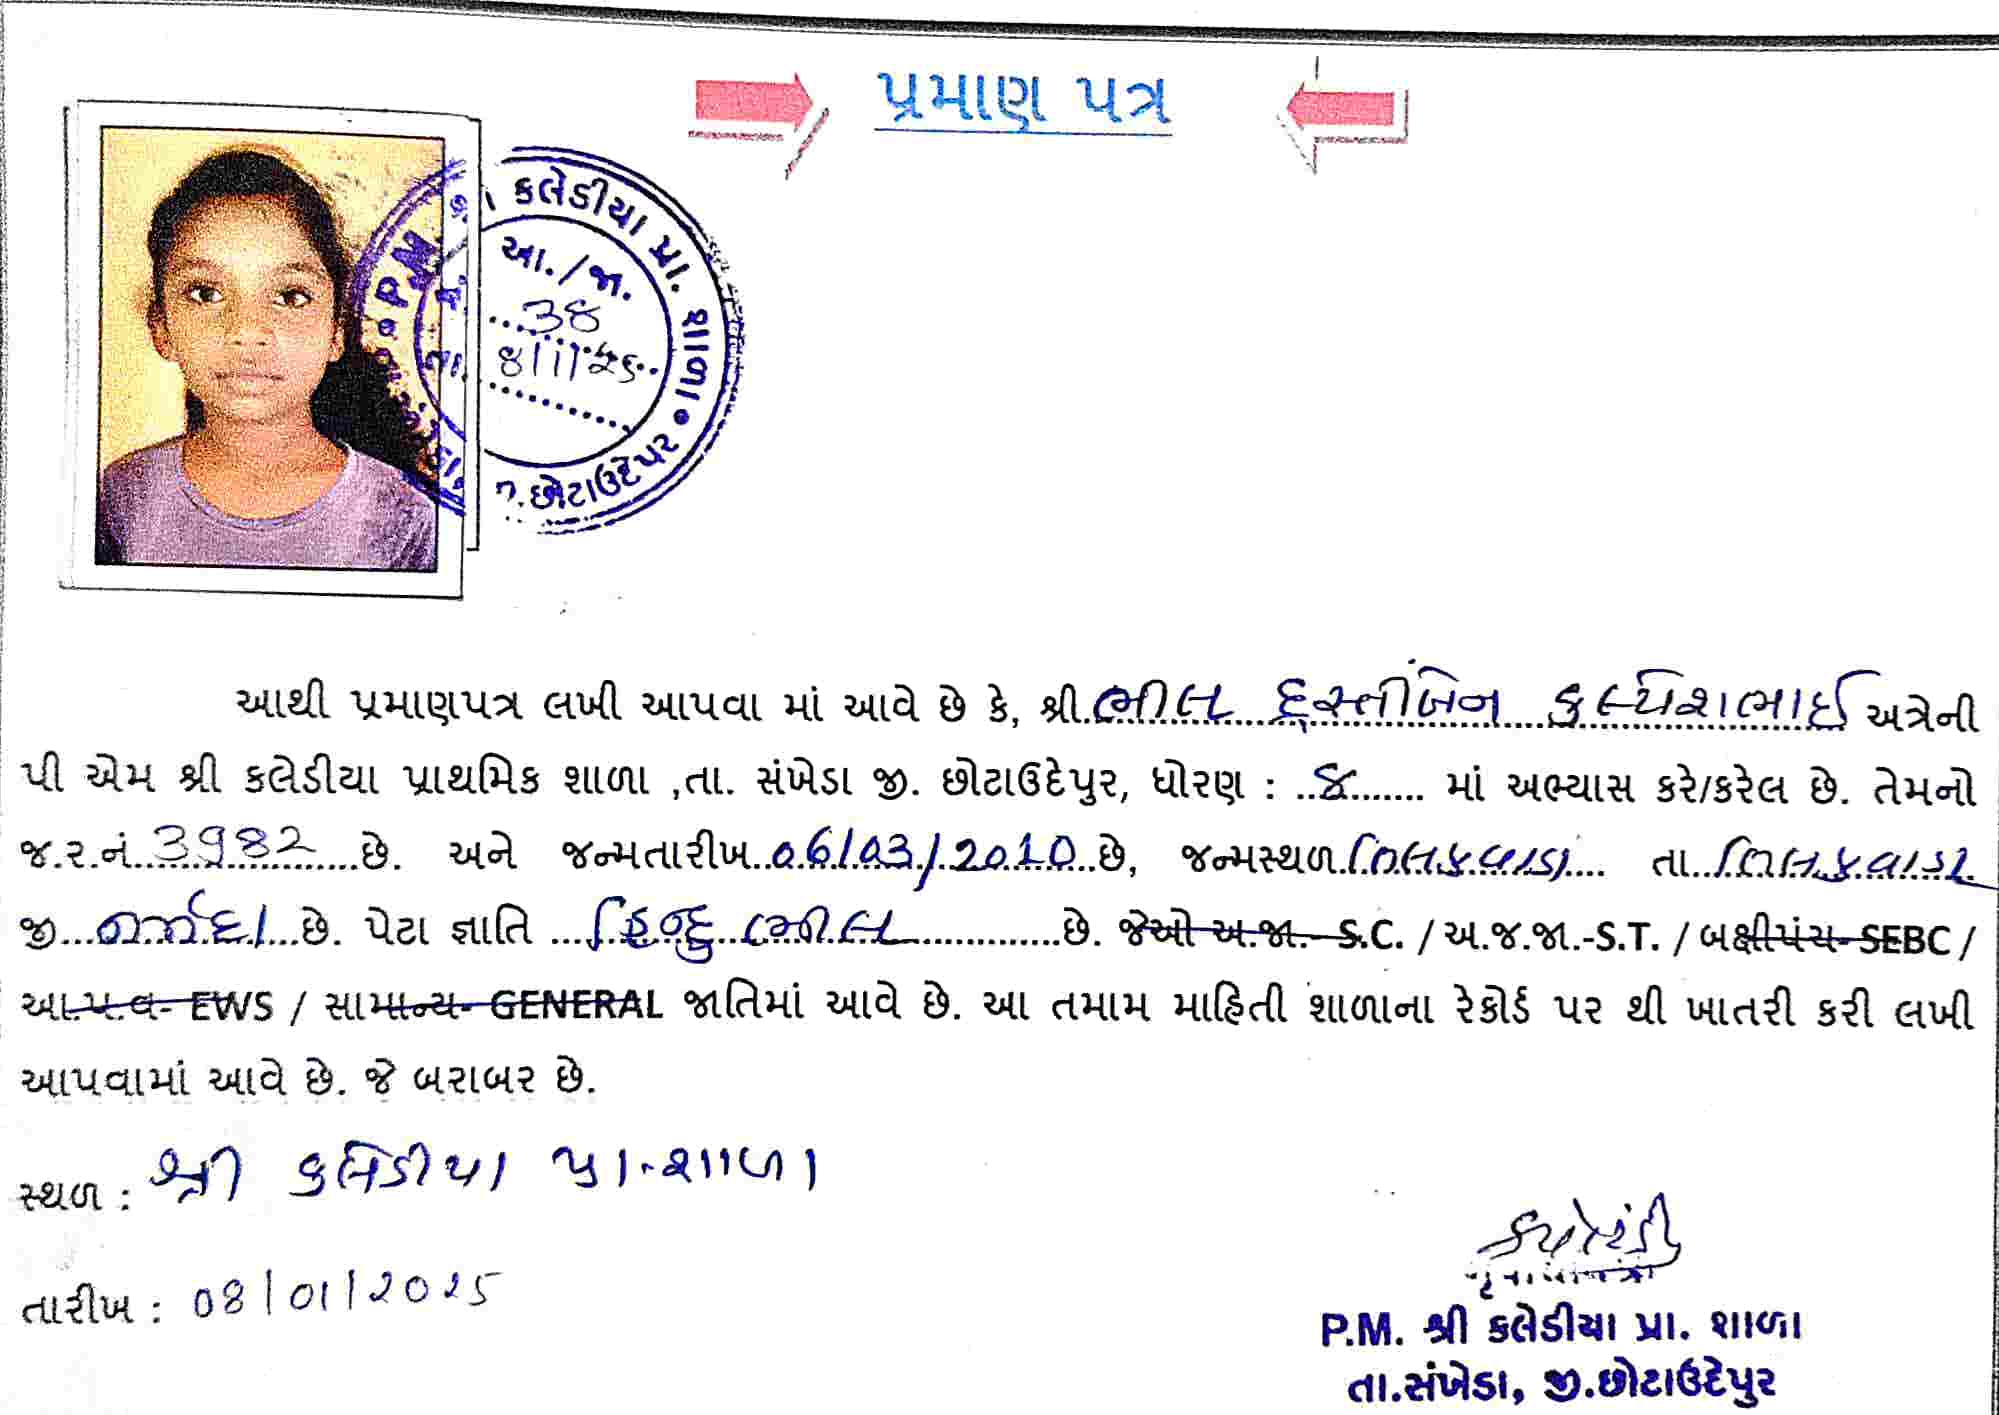 પ્રમાણ પત્ર
કલેડીયા પ્રા. શાળા
P.M.
આ./જા.
38
8/1/25
છોટાઉદેપુર
આથી પ્રમાણપત્ર લખી આપવા માં આવે છે કે, શ્રી ભીલ હસ્તીબેન કલ્પેશભાઈ અત્રેની
પી એમ શ્રી કલેડીયા પ્રાથમિક શાળા ,તા. સંખેડા જી. છોટાઉદેપુર, ધોરણ : ..૪....... માં અભ્યાસ કરે/કરેલ છે. તેમનો
જ.ર.નં..3982...છે. અને જન્મતારીખ..06/03/2010...છે, જન્મસ્થળ.તિલકવાડા.... તા..તિલકવાડા
જી...નર્મદા...છે. પેટા જ્ઞાતિ ....હિન્દુ ભીલ............છે. જેઓ અ.જા.- S.C. / અ.જ.જા.-S.T. / બક્ષીપંચ- SEBC /
આ.પ.વ- EWS / સામાન્ય- GENERAL જાતિમાં આવે છે. આ તમામ માહિતી શાળાના રેકોર્ડ પર થી ખાતરી કરી લખી
આપવામાં આવે છે. જે બરાબર છે.
સ્થળ : શ્રી કલેડીયા પ્રા.શાળા
તારીખ : 08/01/2025
P.M. શ્રી કલેડીયા પ્રા. શાળા
તા.સંખેડા, જી.છોટાઉદેપુર